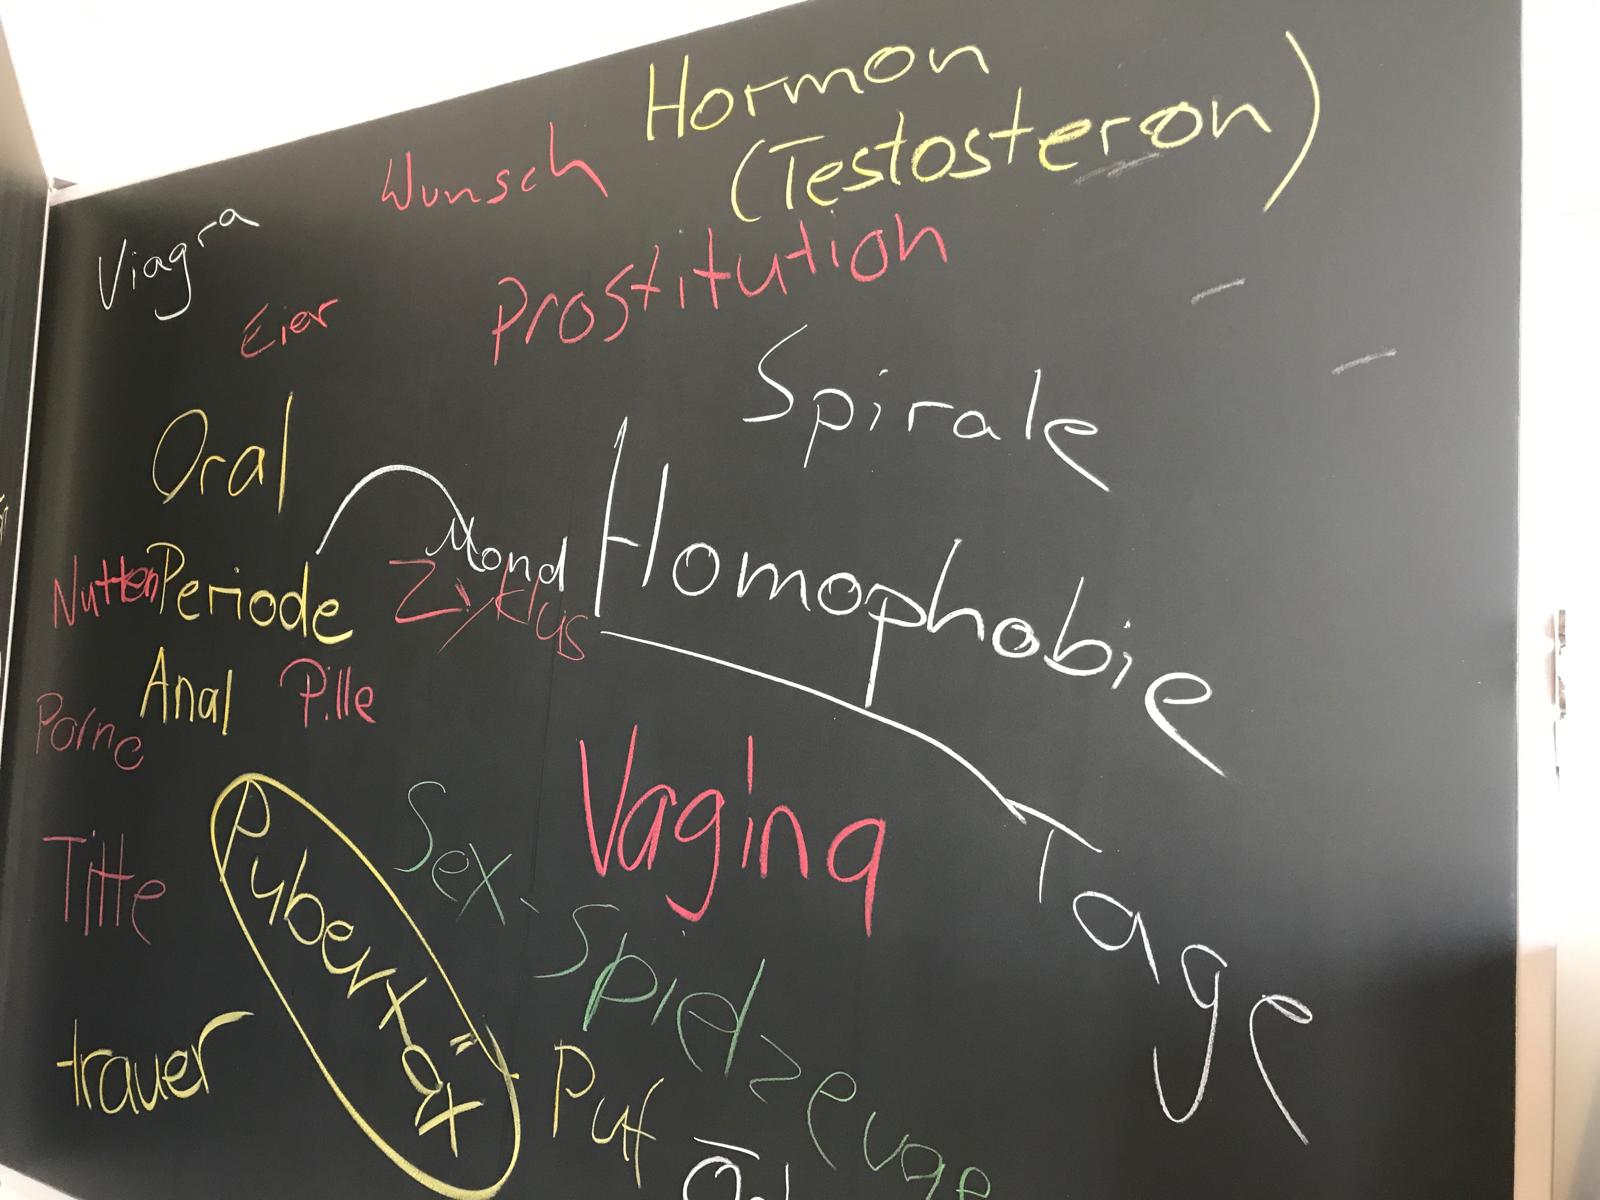 Hormon
(Testosteron)
Wunsch
Viagra
Prostitution
Eier
Spirale
Oral
Mond
Homophobie
Nutten
Periode
Zyklus
Anal
Pille
Porno
Vagina
Pubertät
Sex-
Titte
Tage
Spielzeuge
trauer
Puf